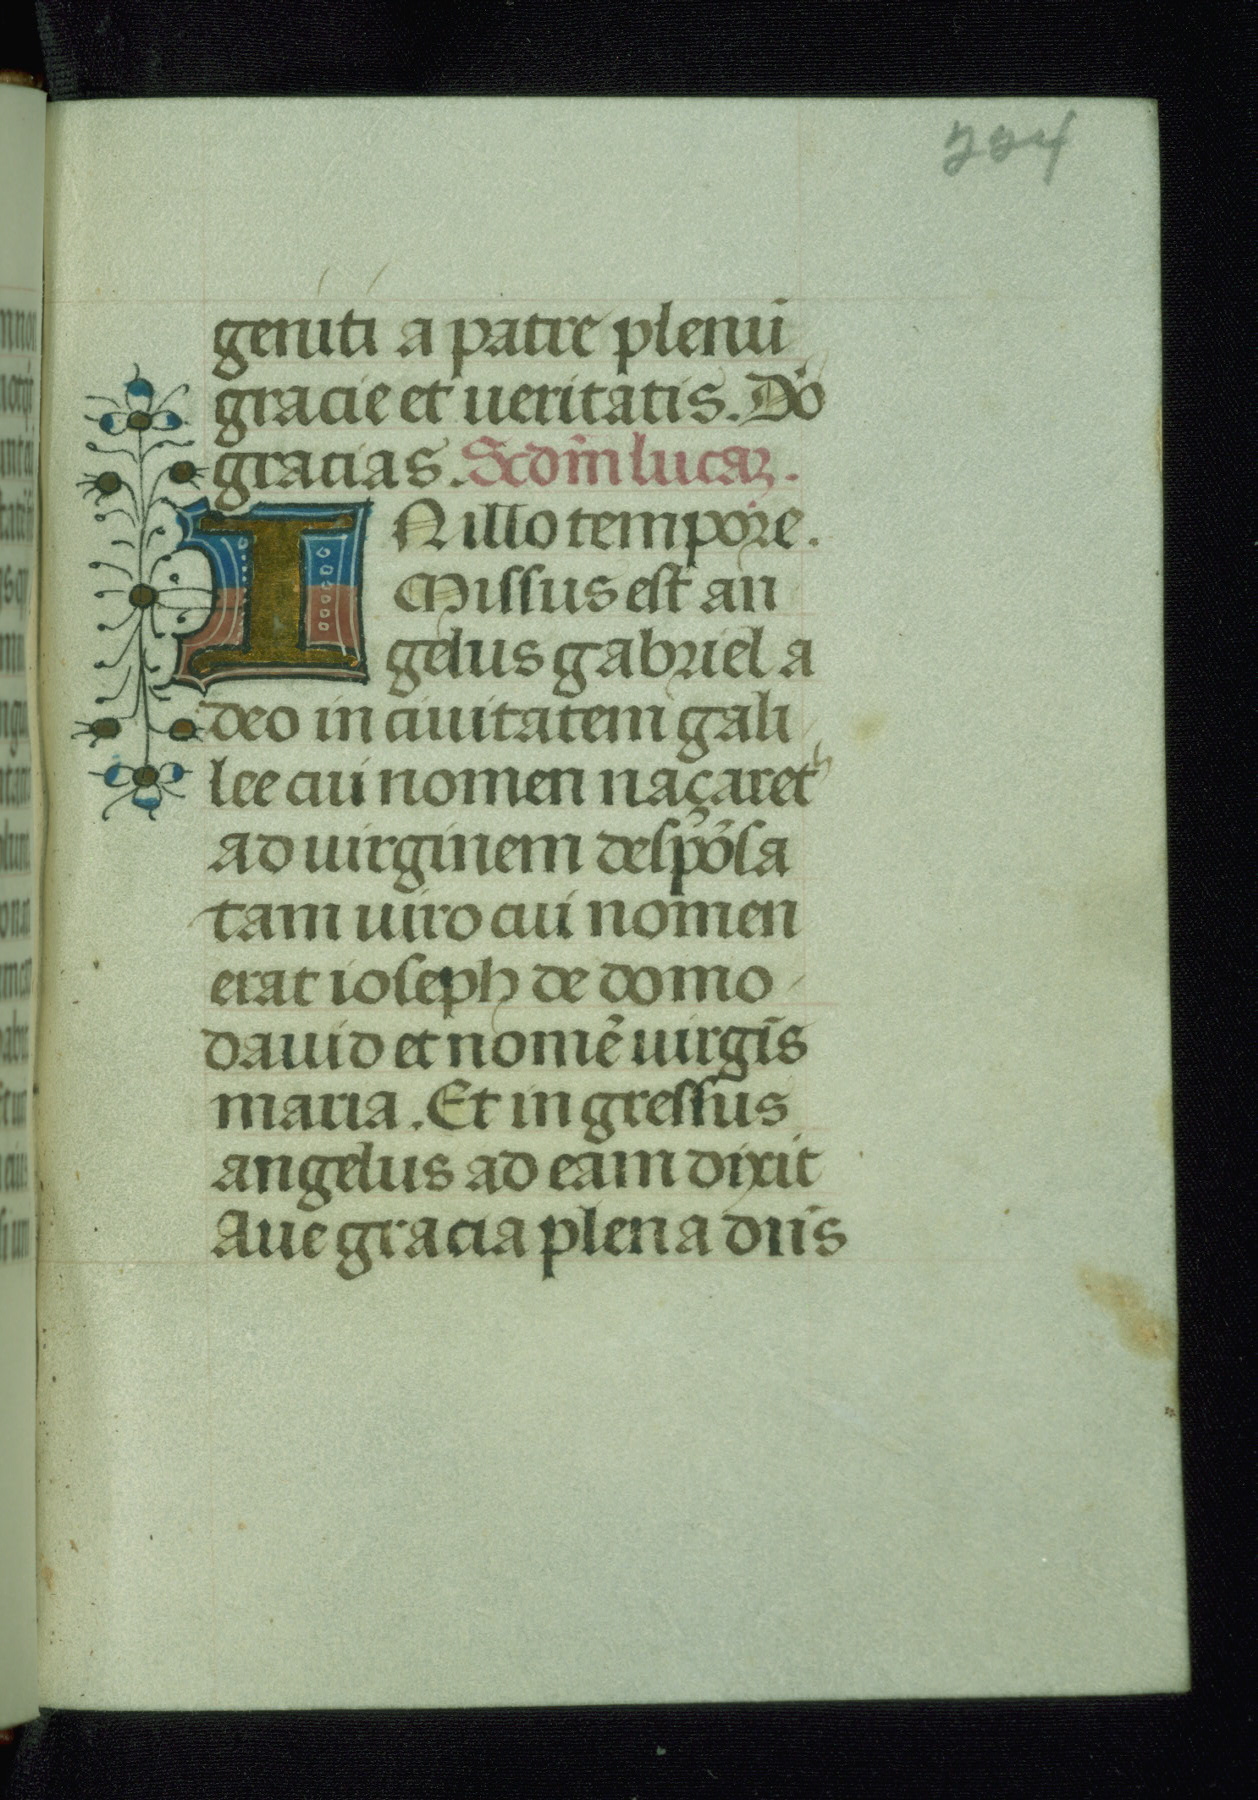 224
geniti a patre plenū
gracie et ueritatis. Dō
gracias. Scdm̄ lucaꝫ.
IN illo tempore.
Missus est an
gelus gabriel a
deo in ciuitatem gali
lee cui nomen naçareth
ad uirginem despōsa
tam uiro cui nomen
erat ioseph de domo
dauid et nomē uirgīs
maria. Et ingressus
angelus ad eam dixit
Aue gracia plena dn̄s